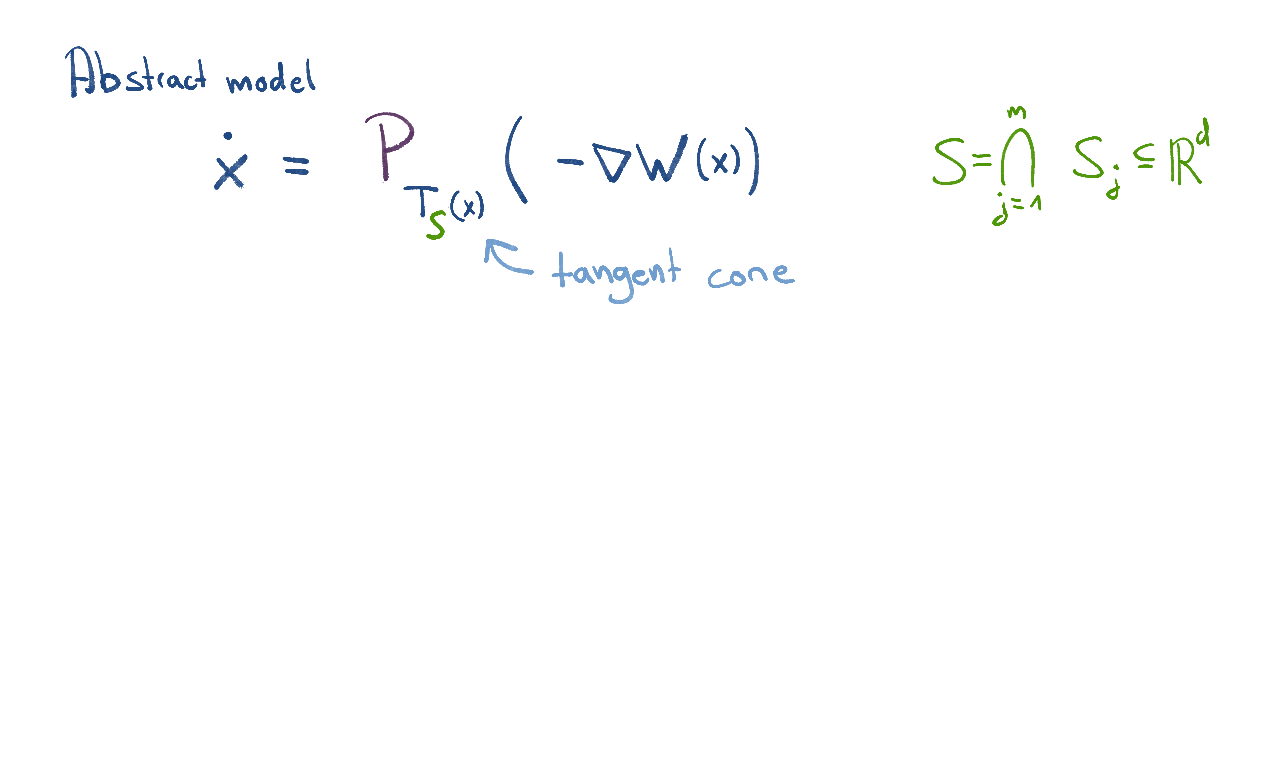 Abstract model
ẋ = P_{T_S(x)} ( -∇W(x) )
S = ⋂_{j=1}^{m} S_j ⊆ ℝ^d
tangent cone